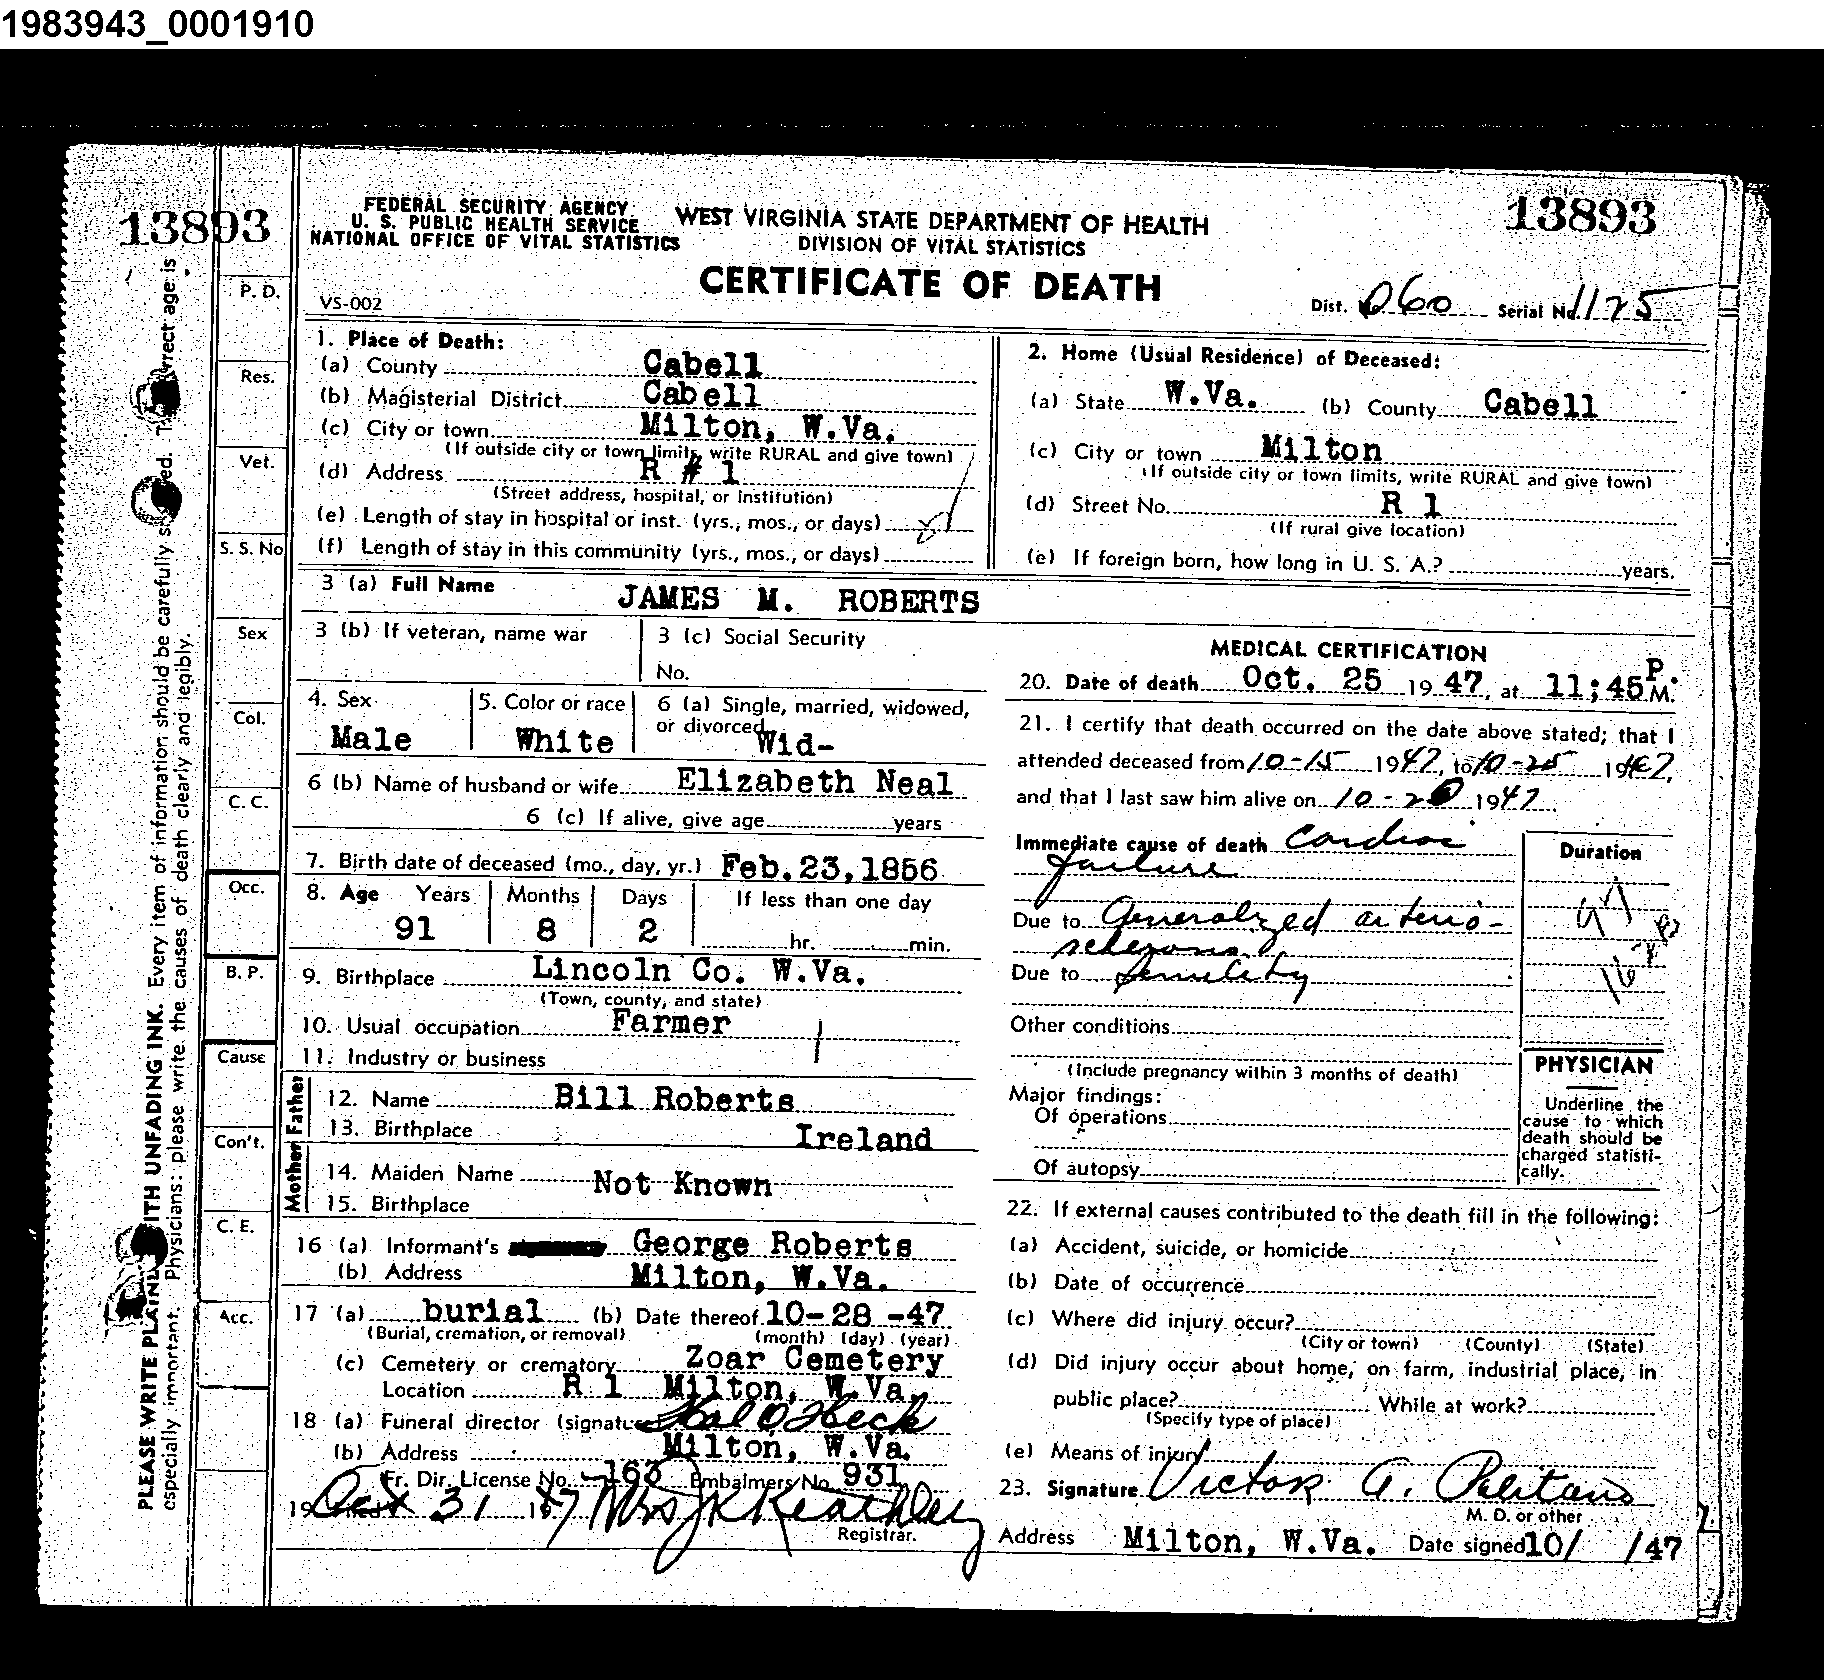 1983943_0001910
13893
FEDERAL SECURITY AGENCY
U. S. PUBLIC HEALTH SERVICE
NATIONAL OFFICE OF VITAL STATISTICS
WEST VIRGINIA STATE DEPARTMENT OF HEALTH
DIVISION OF VITAL STATISTICS
13893
CERTIFICATE OF DEATH
VS-002
Dist. 060 Serial No. 1125
1. Place of Death:
(a) County Cabell
(b) Magisterial District Cabell
(c) City or town Milton, W.Va.
(If outside city or town limits, write RURAL and give town)
(d) Address R # 1
(Street address, hospital, or institution)
(e) Length of stay in hospital or inst. (yrs., mos., or days)
(f) Length of stay in this community (yrs., mos., or days)
2. Home (Usual Residence) of Deceased:
(a) State W.Va. (b) County Cabell
(c) City or town Milton
(If outside city or town limits, write RURAL and give town)
(d) Street No. R 1
(If rural give location)
(e) If foreign born, how long in U. S. A.? years.
3 (a) Full Name JAMES M. ROBERTS
3 (b) If veteran, name war
3 (c) Social Security
No.
4. Sex Male
5. Color or race White
6 (a) Single, married, widowed,
or divorced Wid-
6 (b) Name of husband or wife Elizabeth Neal
6 (c) If alive, give age years
7. Birth date of deceased (mo., day, yr.) Feb.23,1856
8. Age Years Months Days If less than one day
91 8 2 hr. min.
9. Birthplace Lincoln Co. W.Va.
(Town, county, and state)
10. Usual occupation Farmer
11. Industry or business
Father
12. Name Bill Roberts
13. Birthplace Ireland
Mother
14. Maiden Name Not Known
15. Birthplace
16 (a) Informant's George Roberts
(b) Address Milton, W.Va.
17 (a) burial (b) Date thereof 10-28-47
(Burial, cremation, or removal) (month) (day) (year)
(c) Cemetery or crematory Zoar Cemetery
Location R 1 Milton, W.Va.
18 (a) Funeral director (signature Hal O Heck
(b) Address Milton, W.Va.
Fr. Dir. License No. 163 Embalmers No. 931
19 Oct 31 1947 Mrs JK Keathley
Registrar.
MEDICAL CERTIFICATION
20. Date of death Oct. 25 1947, at 11;45 P.M.
21. I certify that death occurred on the date above stated; that I
attended deceased from 10-15 1947, to 10-25 1947,
and that I last saw him alive on 10-20 1947
Immediate cause of death Cardiac
failure
Due to Generalized arterio-
sclerosis
Due to Senility
Other conditions
(Include pregnancy within 3 months of death)
Major findings:
Of operations
Of autopsy
Duration
PHYSICIAN
Underline the
cause to which
death should be
charged statisti-
cally.
22. If external causes contributed to the death fill in the following:
(a) Accident, suicide, or homicide
(b) Date of occurrence
(c) Where did injury occur?
(City or town) (County) (State)
(d) Did injury occur about home, on farm, industrial place, in
public place? While at work?
(Specify type of place)
(e) Means of injury
23. Signature Victor A. Politano
M. D. or other
Address Milton, W.Va. Date signed 10/ /47
P. D.
Res.
Vet.
S. S. No
Sex
Col.
C. C.
Occ.
B. P.
Cause
Con't.
C. E.
Acc.
PLEASE WRITE PLAINLY WITH UNFADING INK. Every item of information should be carefully correct age is
especially important. Physicians: please write the causes of death clearly and legibly.